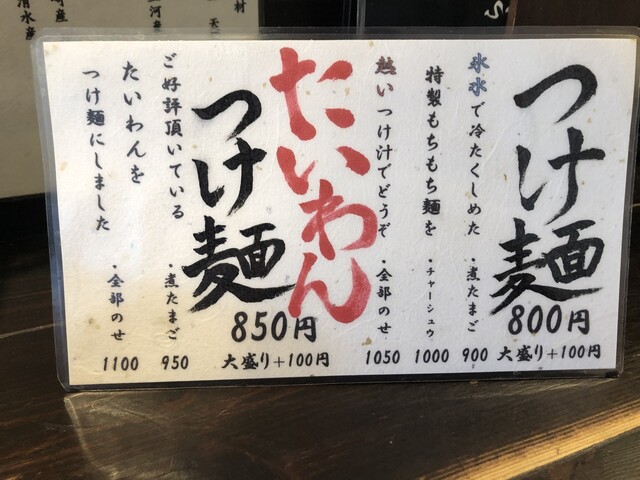 つけ麺
800円
大盛り+100円
氷水で冷たくしめた
・煮たまご
900
特製もちもち麺を
・チャーシュウ
1000
熱いつけ汁でどうぞ
・全部のせ
1050
たいわん
つけ麺
850円
大盛り+100円
ご好評頂いている
・煮たまご
950
たいわんを
つけ麺にしました
・全部のせ
1100